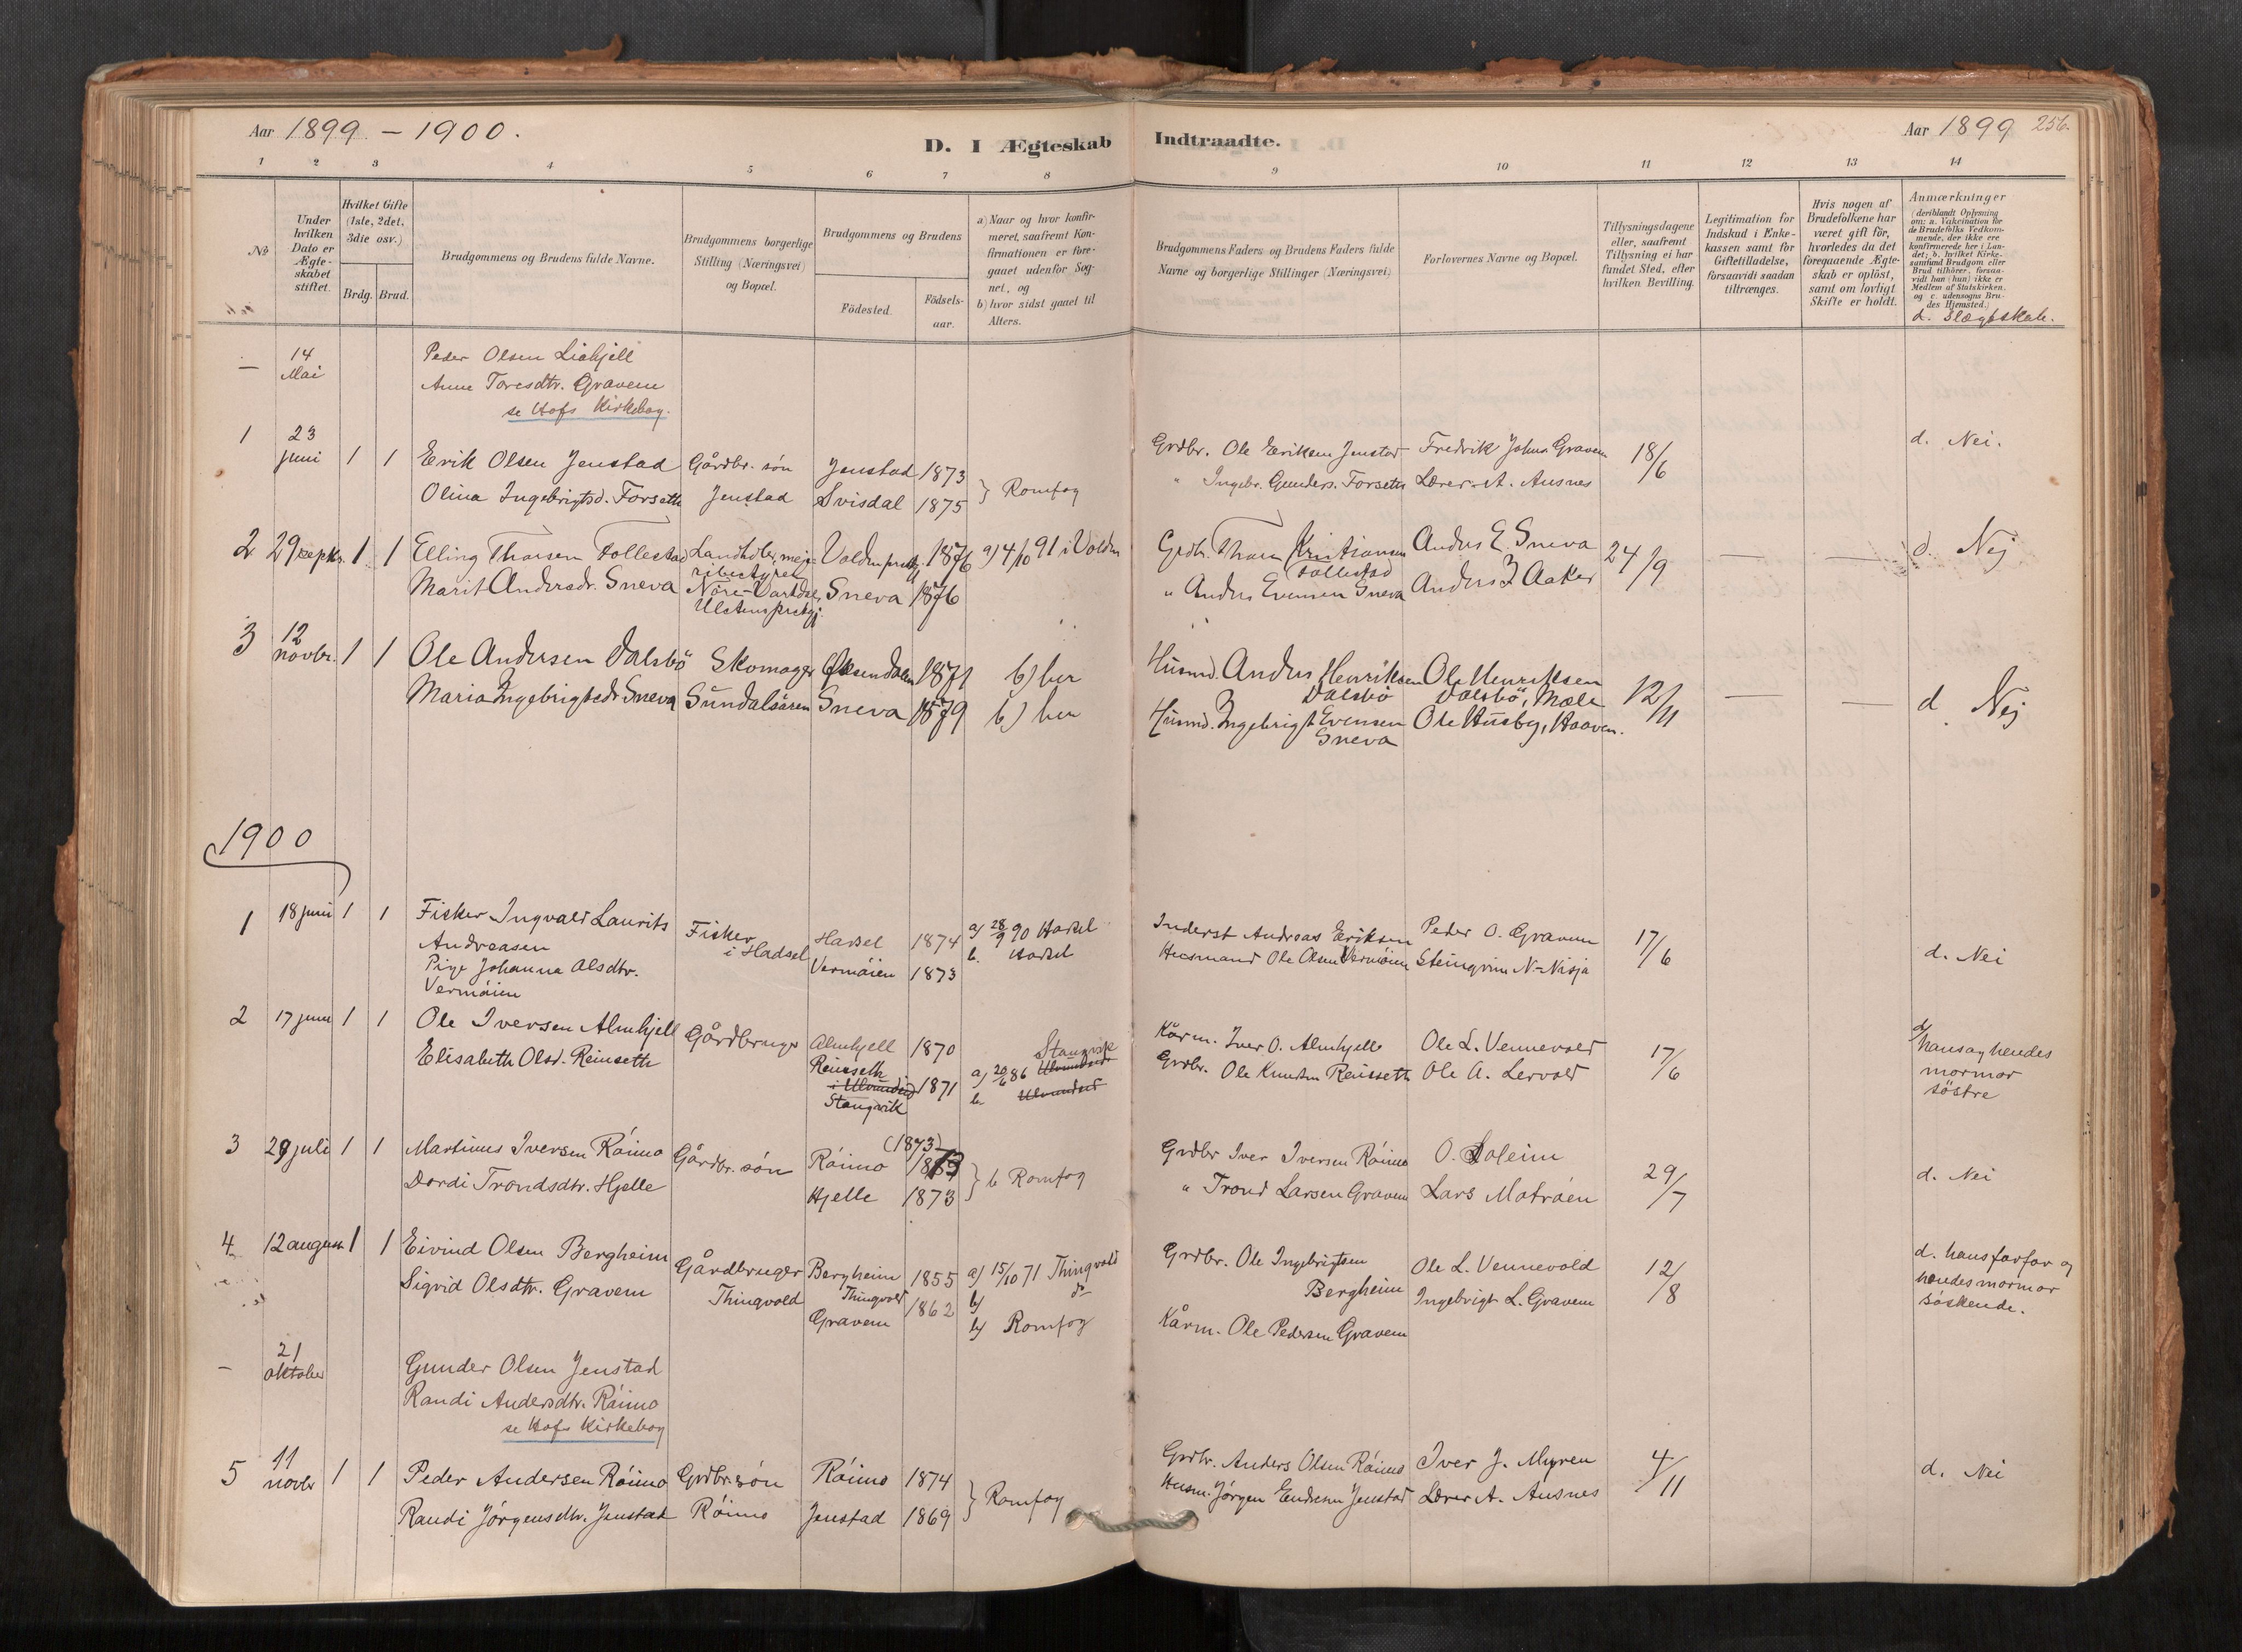 Aar 1899 - 1900.
D. I Ægteskab Indtraadte.
Aar 1899 256.
1 2 3 4 5 6 7 8 9 10 11 12 13 14
№
Under hvilken Dato er Ægteskabet stiftet.
Hvilket Gifte (1ste, 2det, 3die osv.)
Brdg. Brud.
Brudgommens og Brudens fulde Navne.
Brudgommens borgerlige Stilling (Næringsvei) og Bopæl.
Brudgommens og Brudens
Födested. Födsels-aar.
a) Naar og hvor konfirmeret, saafremt Konfirmationen er foregaaet udenfor Sognet, og
b) hvor sidst gaaet til Alters.
Brudgommens Faders og Brudens Faders fulde Navne og borgerlige Stillinger (Næringsvei)
Forlovernes Navne og Bopæl.
Tillysningsdagene eller, saafremt Tillysning ei har fundet Sted, efter hvilken Bevilling.
Legitimation for Indskud i Enkekassen samt for Giftetilladelse, forsaavidt saadan tiltrænges.
Hvis nogen af Brudefolkene har været gift för, hvorledes da det foregaaende Ægteskab er oplöst, samt om lovligt Skifte er holdt.
Anmærkninger
(deriblandt Oplysning om: a. Vakcination for de Brudefolks Vedkommende, der ikke ere konfirmerede her i Landet; b. hvilket Kirkesamfund Brudgom eller Brud tilhörer, forsaavidt han (hun) ikke er Medlem af Statskirken, og c. udensogns Brudes Hjemsted.)
d. Slægtskab.
— 14 Mai Peder Olsen Liahjell
Anne Toresdtr. Gravem
se Hofs Kirkebog.
1 23 juni 1 1 Erik Olsen Jenstad Gårdbr. sön Jenstad 1873 Grdbr. Ole Eriksen Jenstad Fredrik Johns. Gravem 18/6 d. Nei.
Olina Ingebrigtsd. Forseth Jenstad Svisdal 1875 } Romfog " Ingebr. Gunders. Forseth Lærer A. Ausnes
2 29 septbr. 1 1 Elling Thorsen Follestad Landhdler, meje- Volden prstgj. 1876 a) 4/10 91 i Volden Grdbr. Thore Kristiansen Follestad Anders E. Sneva 24/9 — — d. Nej
Marit Andersdr. Sneva Nore-Vartdal, Sneva 1876 " Anders Evensen Sneva Anders I Aaker
Ulstens prstgj.
3 12 novbr. 1 1 Ole Andersen Dalsbö Skomager Öksendalen 1871 b) her Husmd. Anders Henriksen Dalsbö Ole Henriksen Dalsbö, Mæle 12/11 — — d. Nej
Maria Ingebrigtsdr Sneva Sundalsören Sneva 1879 b) her Husmd. Ingebrigt Evensen Sneva Ole Husby, Hoaven.
1900
1 18 juni 1 1 Fisker Ingvald Laurits Fisker Hadsel 1874 a) 28/9 90 Hadsel Inderst Andreas Eriksen Peder O. Gravem 17/6 d. Nei
Andreasen i Hadsel b. Hadsel
Pige Johanna Olsdtr. Vermöien 1873 Husmand Ole Olsen Vermöien Steingrim N. Nisja
Vermöien
2 17 juni 1 1 Ole Iversen Almhjell Gårdbruger Almhjell 1870 Kårm. Iver O. Almhjelle Ole L. Vennevold 17/6 d/ hans og hendes mormor söstre
Elisabeth Olsd. Reinseth Reinseth i Ulvundeid Stangvik 1871 a) 20/6 86 Ulvundeid Stangvik Grdbr. Ole Knudsen Reinseth Ole A. Lervold
b. Ulvundeid
3 29 juli 1 1 Martinus Iversen Röimo Gårdbr. sön Röimo (1873) 1873 Grdbr Iver Iversen Röimo O. Soleim 29/7 d. Nei
Dordi Trondsdtr. Hjelle Hjelle 1873 } b Romfog " Trond Larsen Gravem Lars Motröen
4 12 august 1 1 Eivind Olsen Bergheim Gårdbruger Bergheim Thingvold 1855 a) 15/10 71 Thingvold Grdbr. Ole Ingebrigtsen Bergheim Ole L. Vennevold 12/8 d. hans farfar og hendes mormor söskende.
b) do
Sigrid Olsdtr. Gravem Thingvold Gravem 1862 b) Romfog Kårm. Ole Pedersen Gravem Ingebrigt L. Gravem
— 21 oktober Gunder Olsen Jenstad
Randi Andersdtr. Röimo
se Hofs Kirkebog
5 11 novbr 1 1 Peder Andersen Röimo Grdbr. sön Röimo 1874 Grdbr. Anders Olsen Röimo Iver J. Myren 4/11 d. Nei
Randi Jörgensdtr. Jenstad Röimo Jenstad 1869 } Romfog Husm. Jörgen Endresen Jenstad Lærer A. Ausnes